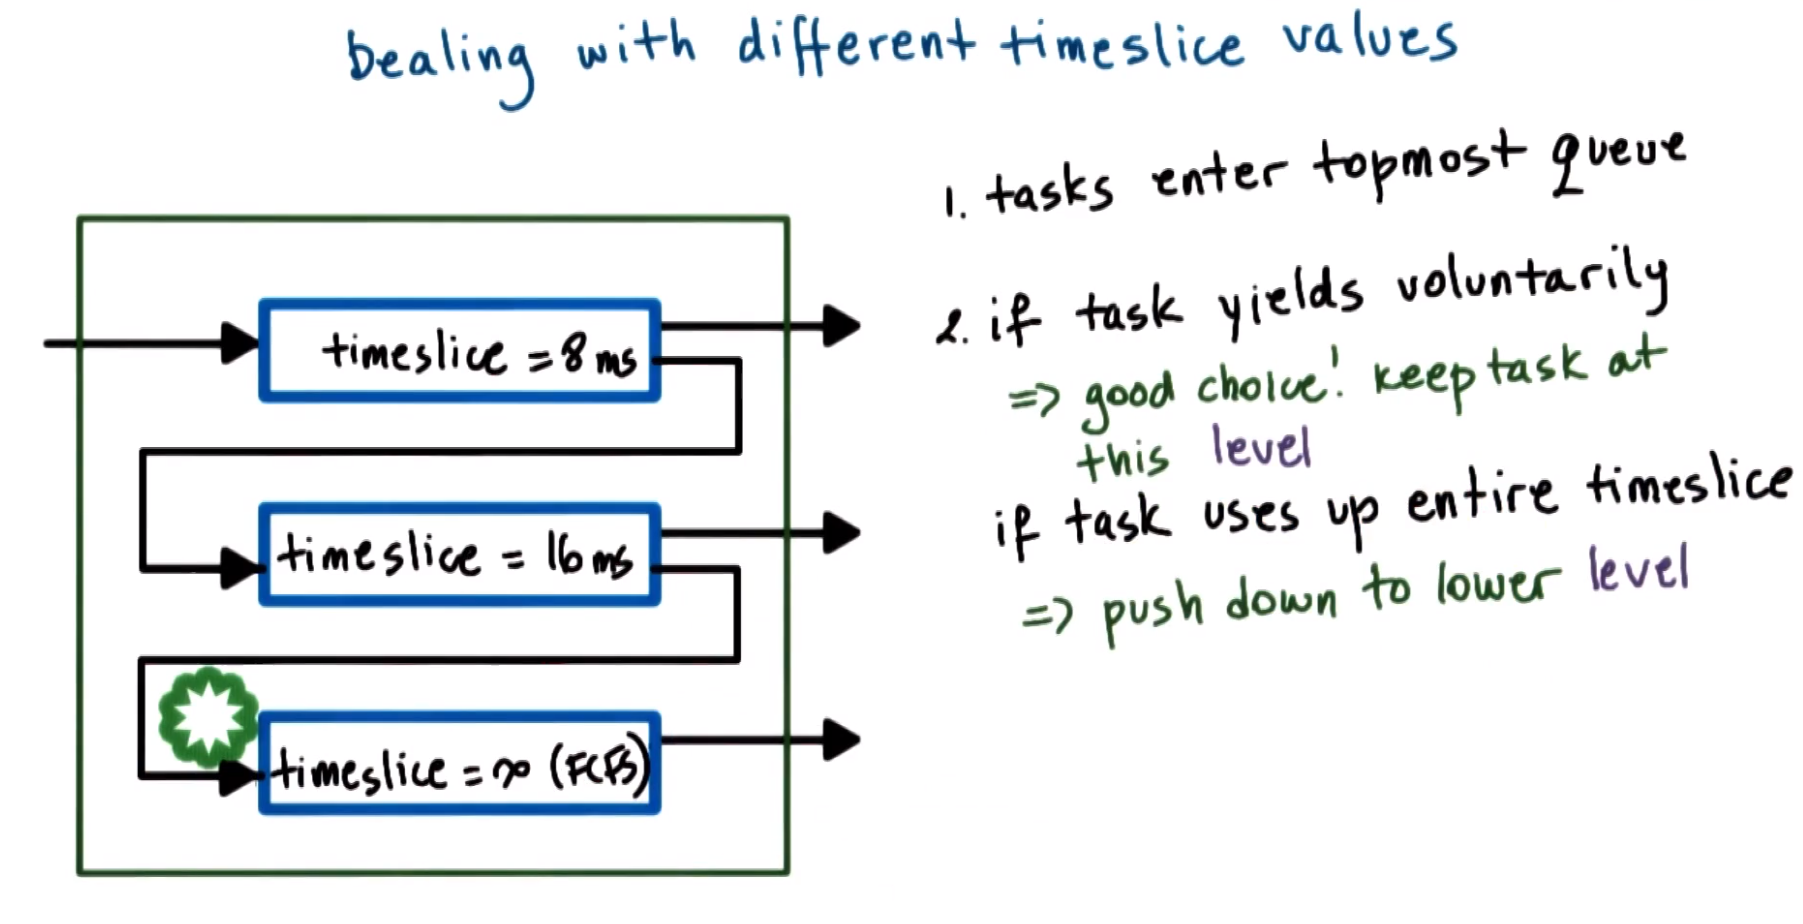 Dealing with different timeslice values
timeslice = 8 ms
timeslice = 16 ms
timeslice = ∞ (FCFS)
1. tasks enter topmost queue
2. if task yields voluntarily
=> good choice! keep task at
this level
if task uses up entire timeslice
=> push down to lower level